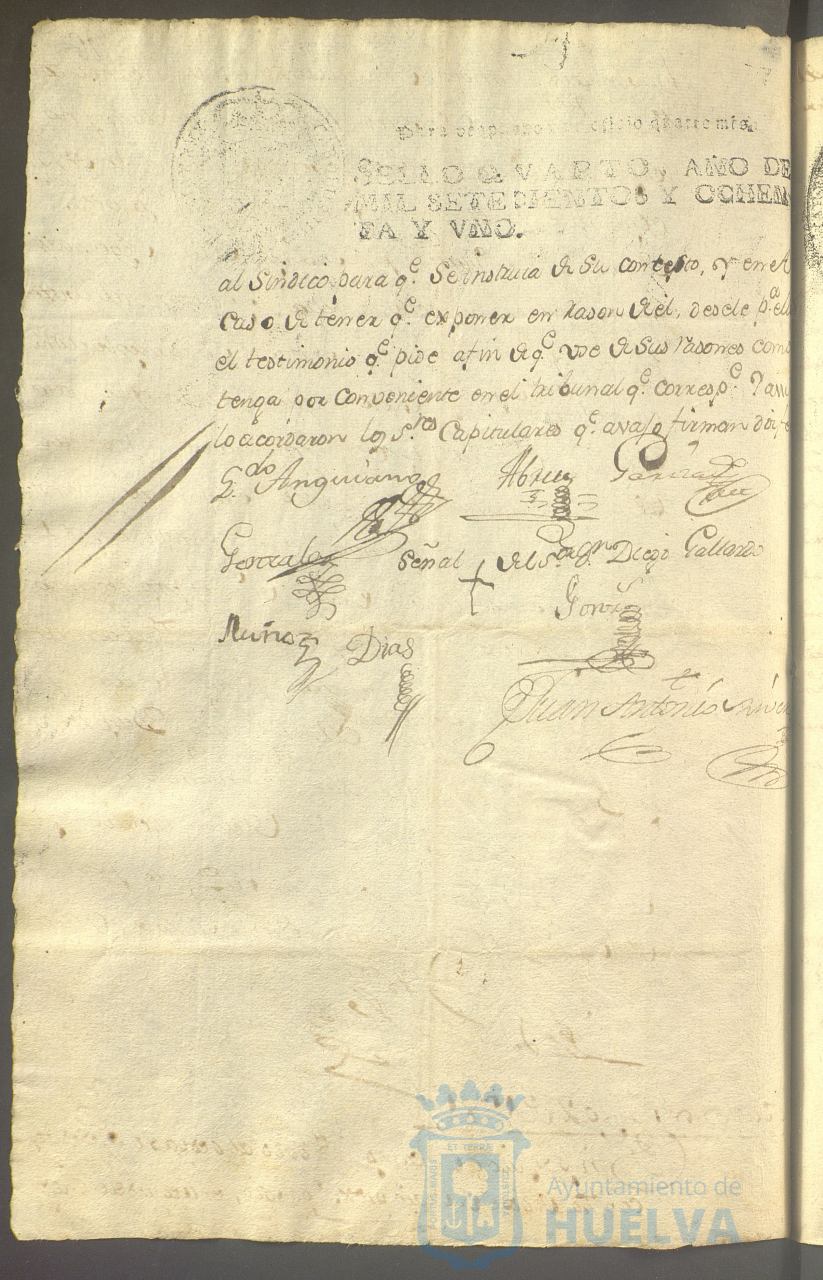 de oficio quatro mrs.
SELLO QVARTO, AÑO DE
MIL SETECIENTOS Y OCHEN
TA Y VNO.
al Sindico para q.e Se instruia de Su contexto, y en el
Caso de tener q.e exponer en rason de él, desele p.a ello
el testimonio q.e pide a fin de q.e use de Sus rasones como
tenga por Conveniente en el tribunal q.e corresp.e
lo acordaron los S.res Capitulares q.e avajo firman
L.do Anguiano Abreu Garcia
Gonzales Señal + del S.or Diego Gallardo
Gonz.s
Muñoz Dias
Juan Antonio
ET TERRÆ
Ayuntamiento de
HUELVA